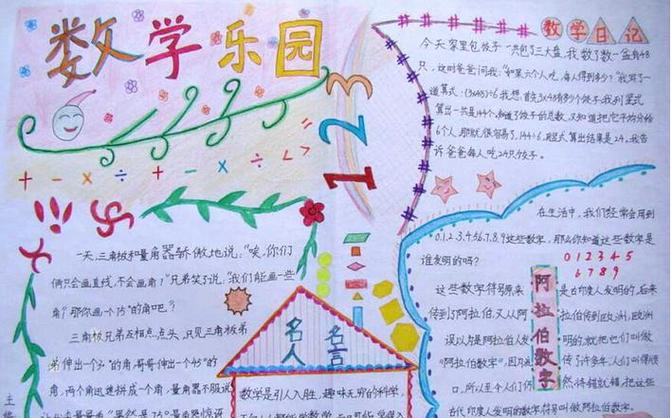 数学乐园
+ - × ÷ + - × ÷ < > =
123
数学日记
今天,家里包饺子,一共包了三大盘,我数了数一盘有48
只,这时爸爸问我:"如果六个人吃,每人得到多少?"我列了一
道算式:(3×48)÷6我想,首先3×48
算出一共是144个,知道了饺子的总数,又知道把它平均分给
6个人,那就很容易了,144÷6,算出结果是24,我告
诉爸爸每人吃24只饺子。
在生活中,我们经常会用到
0.1.2.3.4.5.6.7.8.9这些数字,那么你知道这些数字是
谁发明的吗?
0 1 2 3 4 5
6 7 8 9
这些数字符号原来是古印度人发明的,后来
传到了阿拉伯,又从阿拉伯传到欧洲,欧洲
误以为是阿拉伯人发明的,就把它们叫做
"阿拉伯数字",因为传了许多年,人们叫得顺
口,所以至今人们仍然将错就错,把这些
古代印度人发明的数字符号叫做阿拉伯数字。
阿拉伯数字
一天,三角板和量角器骄傲地说:"唉,你们
俩只会画直线,不会画角?"兄弟笑了说:"我们能画一些
角?那你画一个75°的角吧?"
三角板兄弟互相点点头,只见三角板弟
弟伸出一个30°的角,哥哥伸出一个45°的
角,两个角迅速拼成一个角,量角器不服
名人名言
数学是引人入胜,趣味无穷的科学,